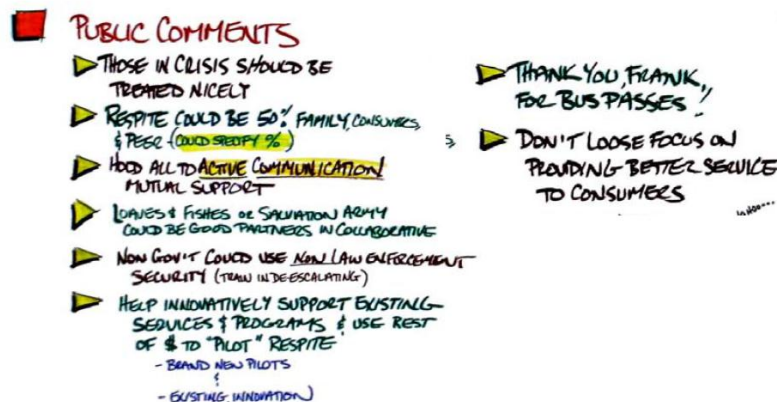 PUBLIC COMMENTS
THOSE IN CRISIS SHOULD BE
TREATED NICELY
RESPITE COULD BE 50% FAMILY, CONSUMERS,
& PEER (COULD SPECIFY %)
HOLD ALL TO ACTIVE COMMUNICATION
MUTUAL SUPPORT
LOAVES & FISHES OR SALVATION ARMY
COULD BE GOOD PARTNERS IN COLLABORATIVE
NON GOV'T COULD USE NON LAW ENFORCEMENT
SECURITY (TRAIN IN DE-ESCALATING)
HELP INNOVATIVELY SUPPORT EXISTING
SERVICES & PROGRAMS & USE REST
OF $ TO "PILOT" RESPITE
- BRAND NEW PILOTS
&
- EXISTING INNOVATION
THANK YOU, FRANK,
FOR BUS PASSES!
DON'T LOOSE FOCUS ON
PROVIDING BETTER SERVICE
TO CONSUMERS